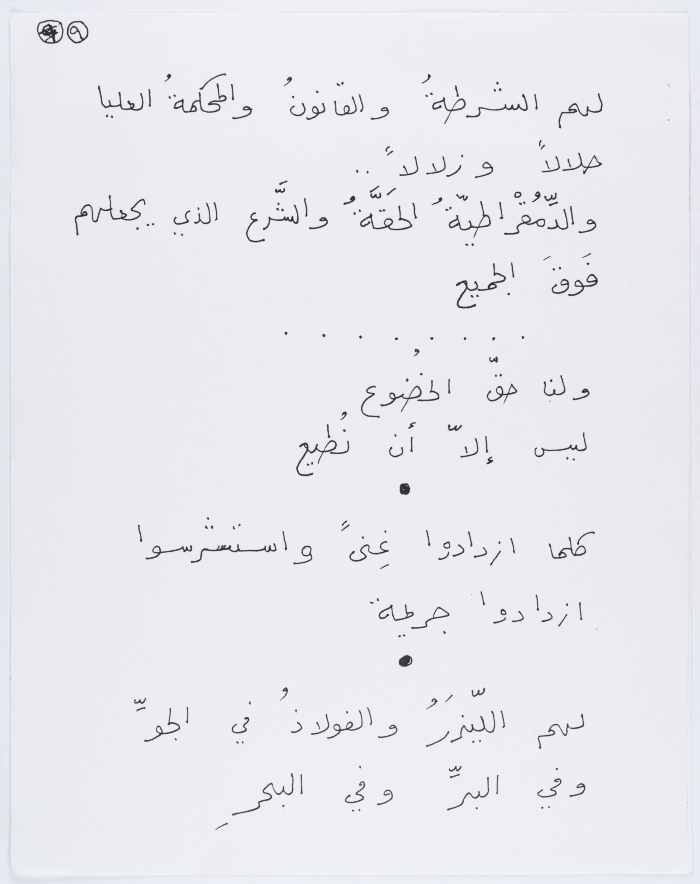 ٩
لهم الشرطةُ والقانونُ والمحكمةُ العليا
حلالاً وزلالاً ..
والدِّمُقْراطيّةُ الحَقَّةُ والشَّرع الذي يجعلهم
فَوقَ الجميع
. . . . . . . .
ولنا حقّ الخُضُوع
ليس إلاّ أن نُطيع
•
كلما ازدادوا غِنىً واستشرسوا
ازدادوا جريمة
•
لهم اللّيزَرُ والفولاذُ في الجوِّ
وفي البرِّ وفي البحرِ